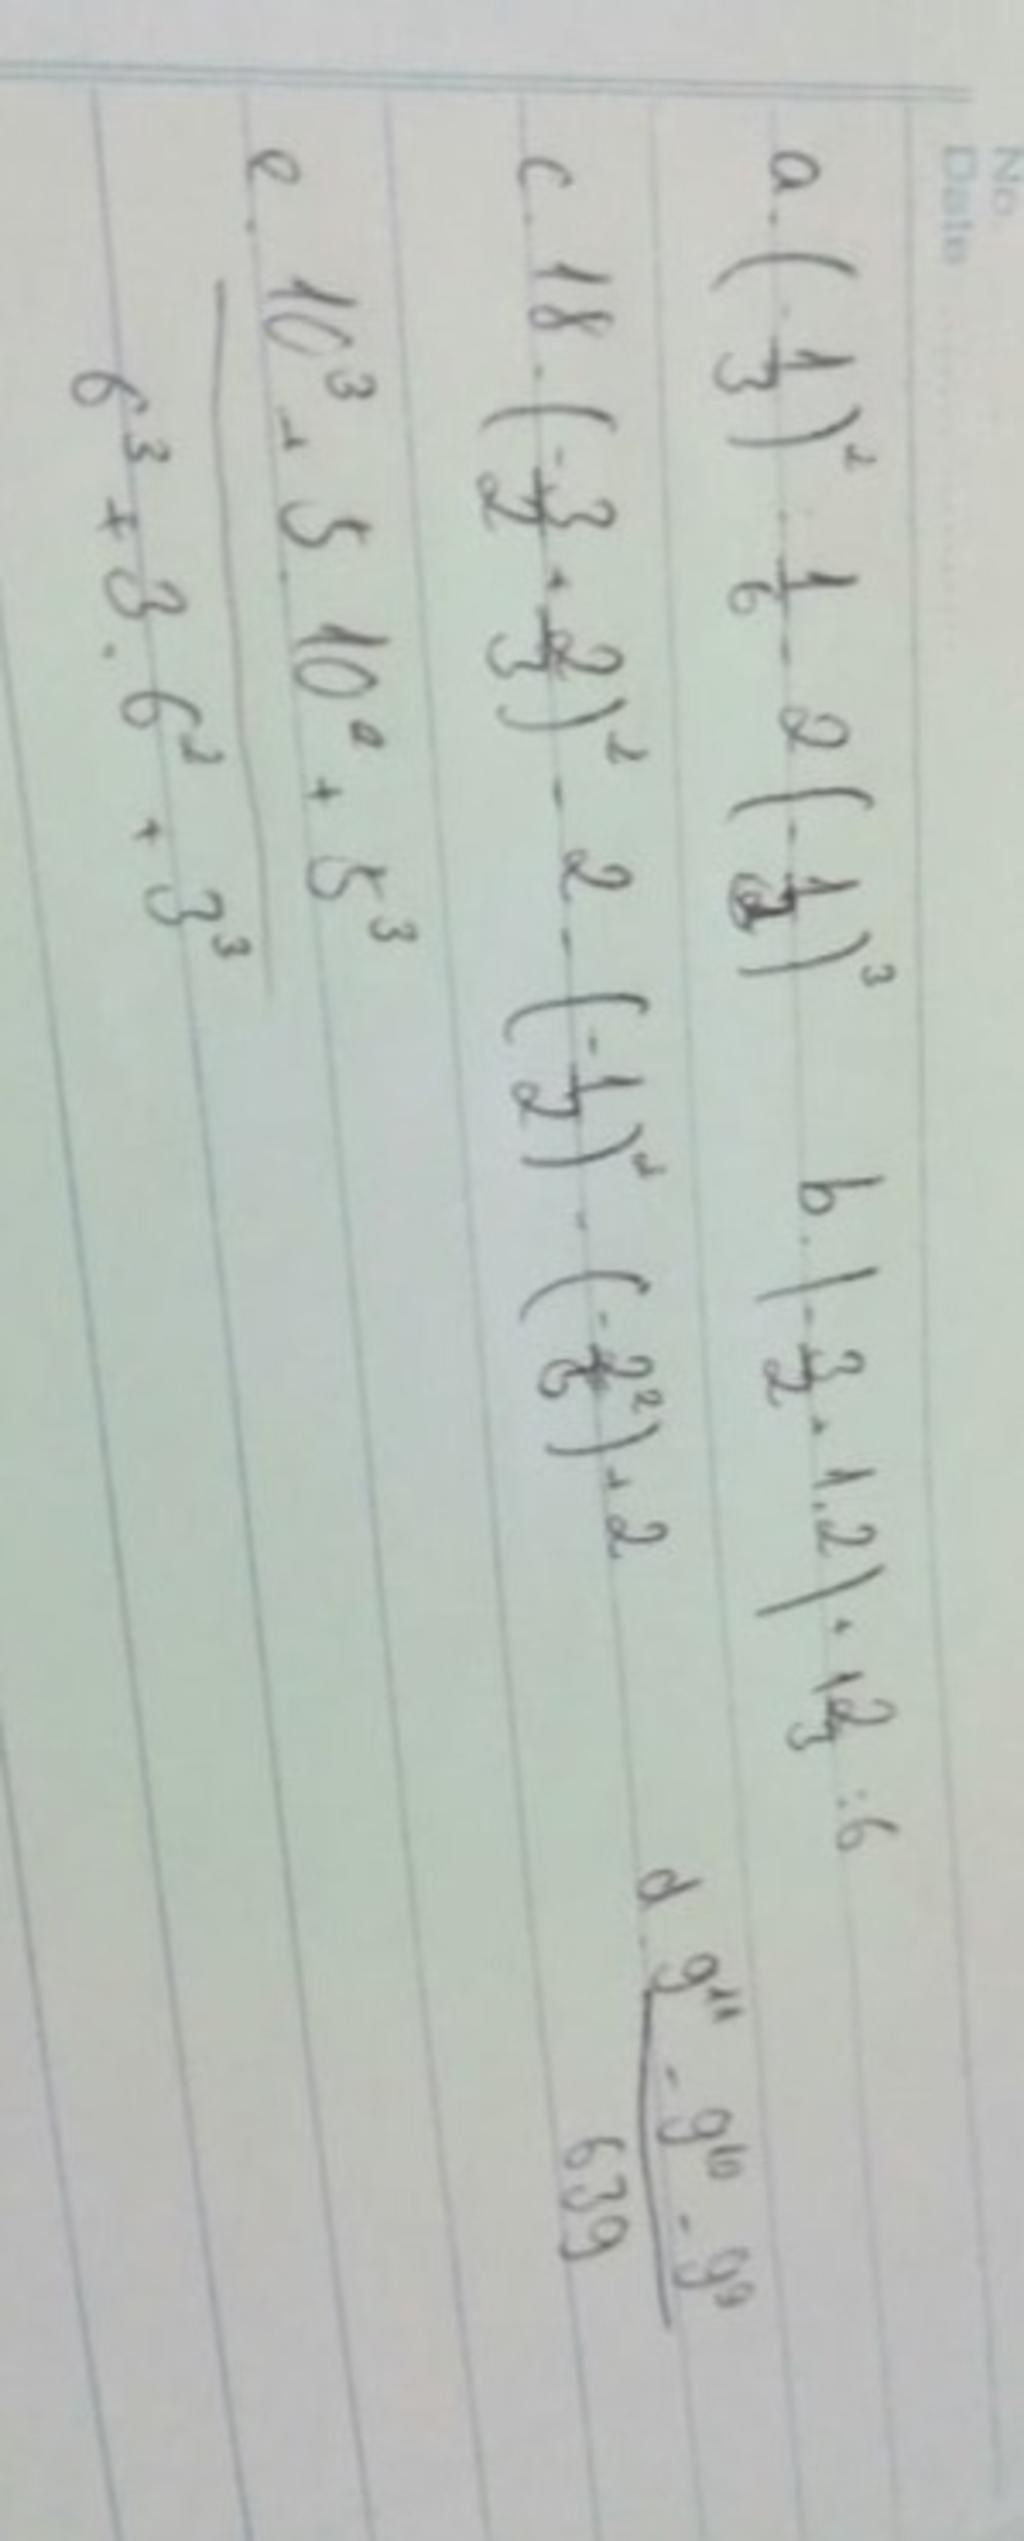 No.
Date
a. (-1/3)² : 1/6 - 2(-1/2)³ b. |-3/2 + 1.2| + 1 2/3 : 6
c. 18 . (-3/2 + 2/3)² - 2 - (-1/2)² - (-2²/6) + 2 d. 9¹¹ - 9¹⁰ - 9⁹
639
e. 10³ + 5 . 10² + 5³
6³ + 3 . 6² + 3³